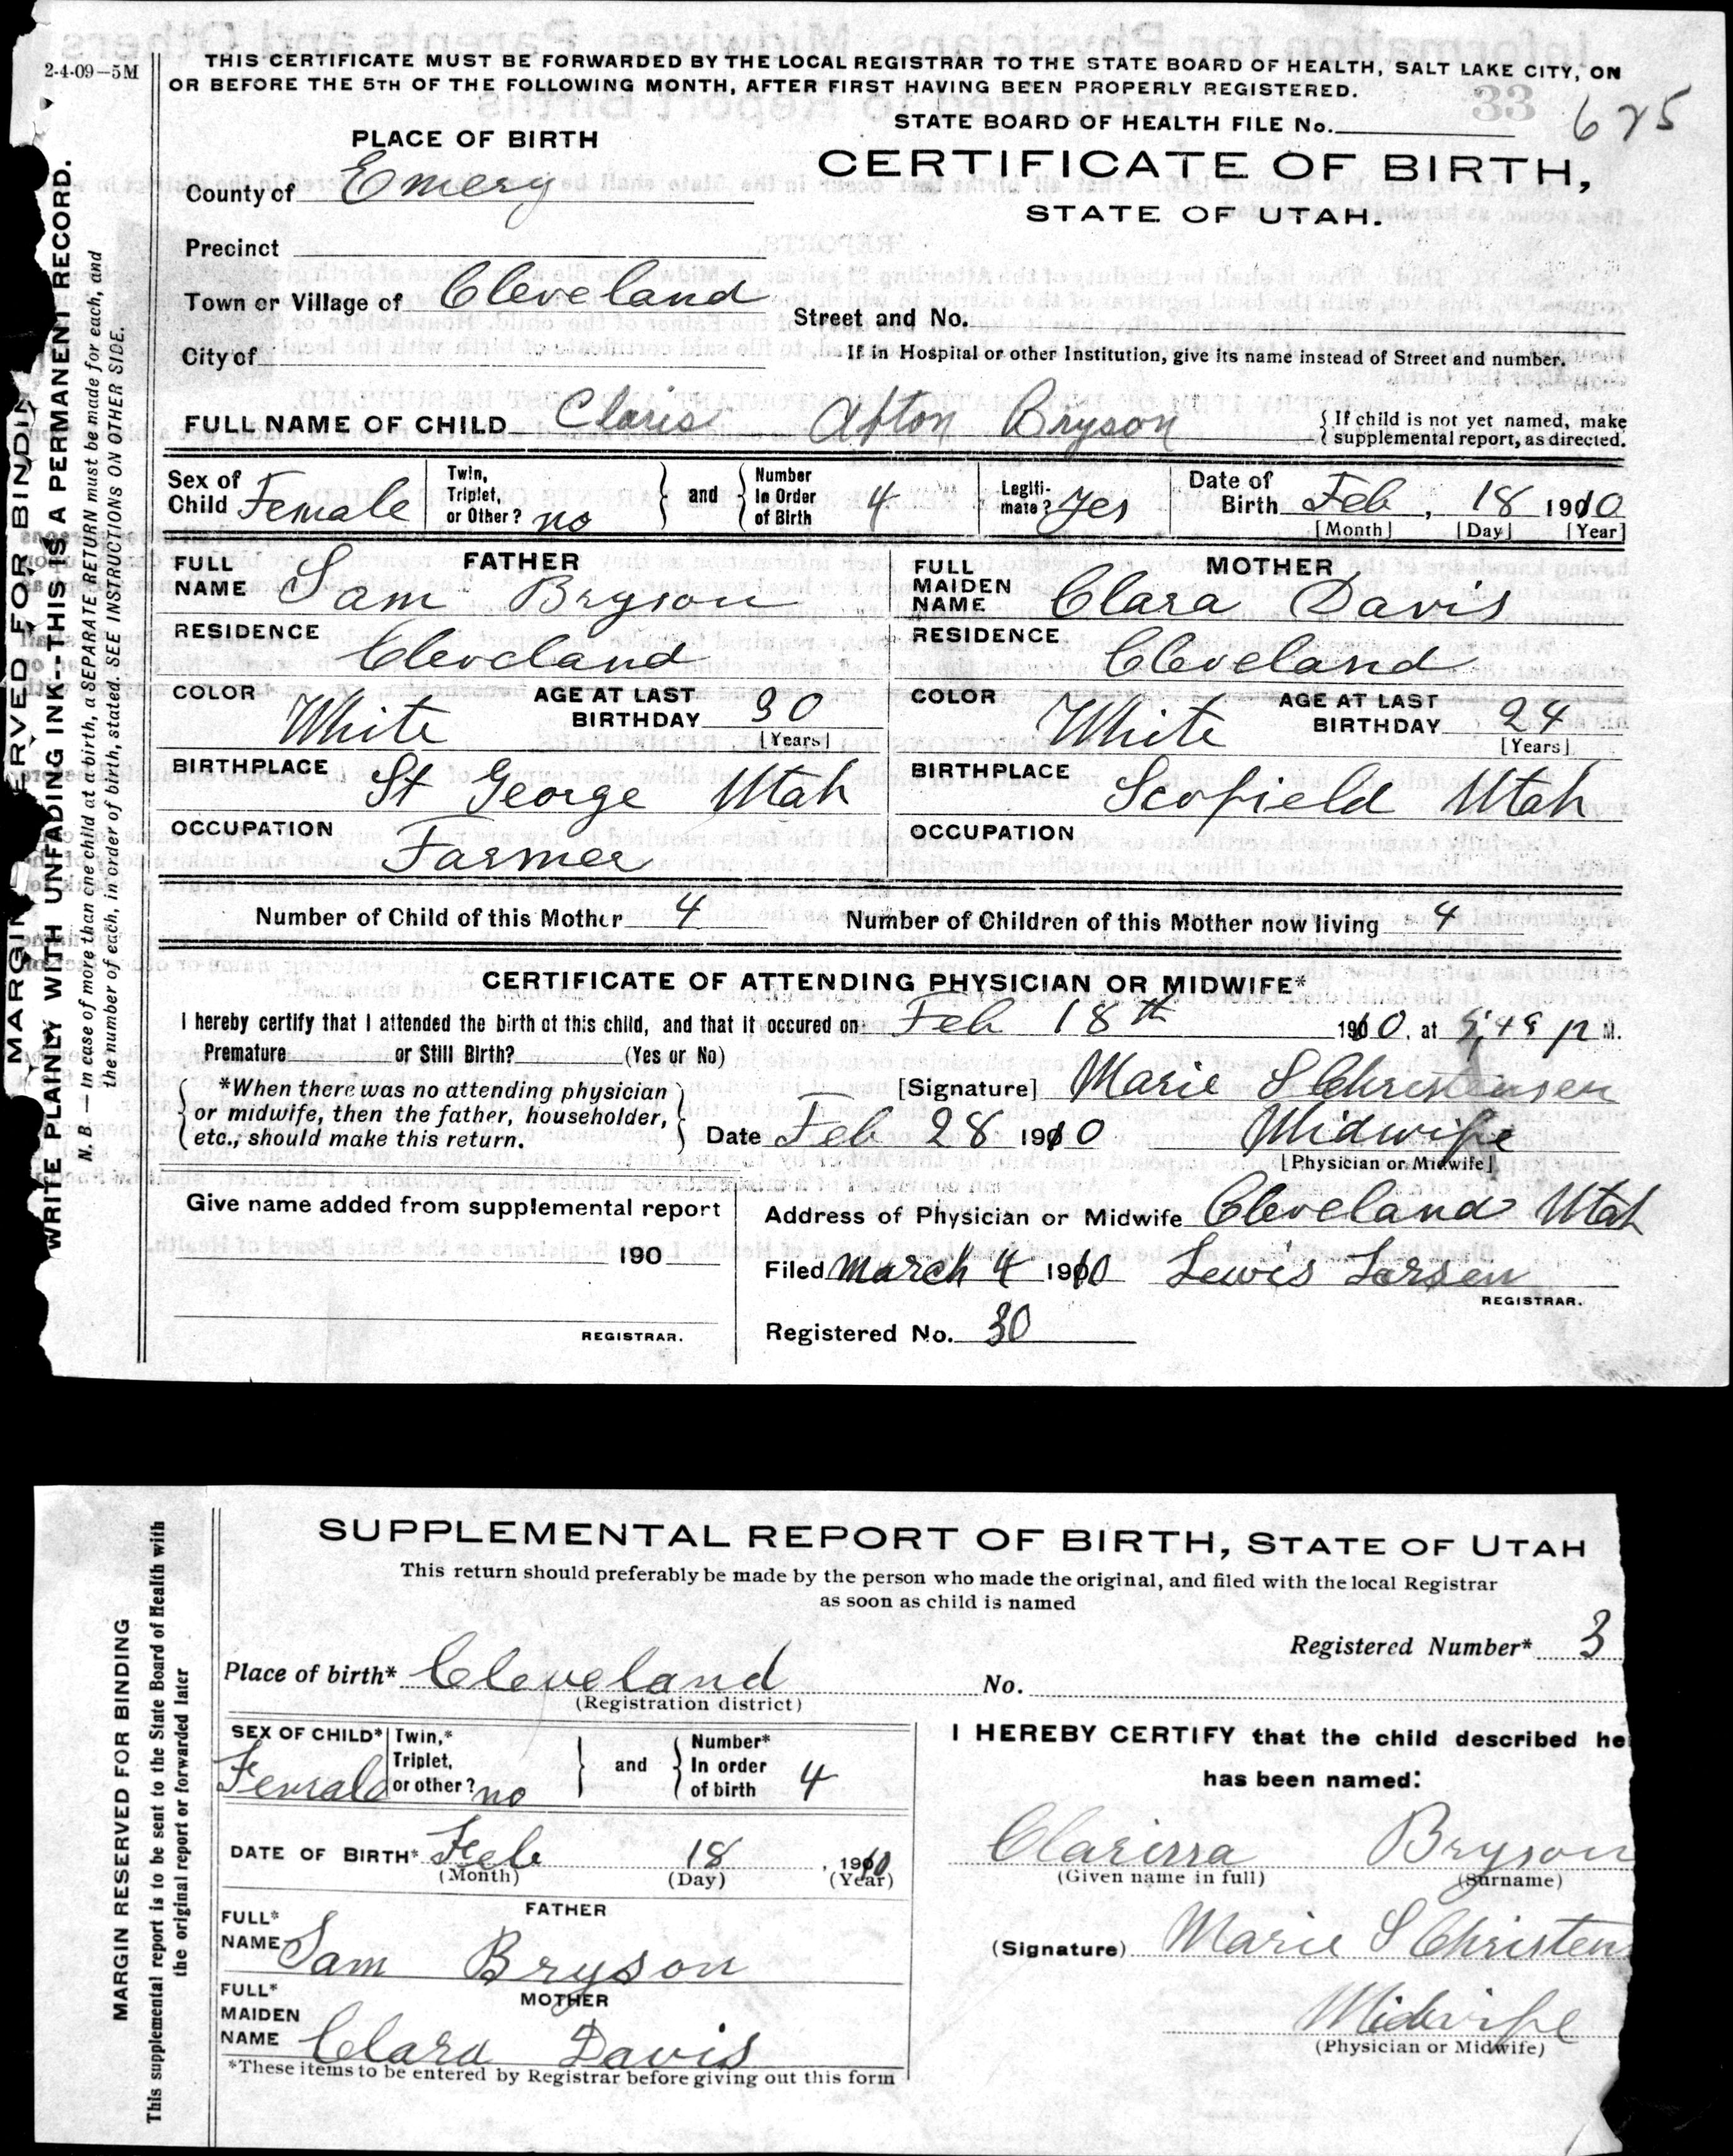 2-4-09-5M
THIS CERTIFICATE MUST BE FORWARDED BY THE LOCAL REGISTRAR TO THE STATE BOARD OF HEALTH, SALT LAKE CITY, ON
OR BEFORE THE 5TH OF THE FOLLOWING MONTH, AFTER FIRST HAVING BEEN PROPERLY REGISTERED.
STATE BOARD OF HEALTH FILE No. 33 625
PLACE OF BIRTH
CERTIFICATE OF BIRTH,
STATE OF UTAH.
County of Emery
Precinct
Town or Village of Cleveland
Street and No.
City of
If in Hospital or other Institution, give its name instead of Street and number.
FULL NAME OF CHILD Claris Afton Bryson
{ If child is not yet named, make
supplemental report, as directed.
Sex of Child Female
Twin, Triplet, or Other? no
and
Number In Order of Birth 4
Legiti-mate? Yes
Date of Birth Feb, 18 1910
[Month] [Day] [Year]
FATHER
FULL NAME Sam Bryson
MOTHER
FULL MAIDEN NAME Clara Davis
RESIDENCE Cleveland
RESIDENCE Cleveland
COLOR White AGE AT LAST BIRTHDAY 30 [Years]
COLOR White AGE AT LAST BIRTHDAY 24 [Years]
BIRTHPLACE St George Utah
BIRTHPLACE Scofield Utah
OCCUPATION Farmer
OCCUPATION
Number of Child of this Mother 4 Number of Children of this Mother now living 4
CERTIFICATE OF ATTENDING PHYSICIAN OR MIDWIFE*
I hereby certify that I attended the birth of this child, and that it occured on Feb 18th 1910, at P M.
Premature or Still Birth? (Yes or No)
*When there was no attending physician
or midwife, then the father, householder,
etc., should make this return.
[Signature] Marie S Christensen
Date Feb 28 1910 Midwife
[Physician or Midwife]
Give name added from supplemental report
190
REGISTRAR.
Address of Physician or Midwife Cleveland Utah
Filed March 4 1910 Lewis Larsen
REGISTRAR.
Registered No. 30
MARGIN RESERVED FOR BINDING
WRITE PLAINLY WITH UNFADING INK--THIS IS A PERMANENT RECORD.
N. B. — In case of more than one child at a birth, a SEPARATE RETURN must be made for each, and
the number of each, in order of birth, stated. SEE INSTRUCTIONS ON OTHER SIDE.
SUPPLEMENTAL REPORT OF BIRTH, STATE OF UTAH
This return should preferably be made by the person who made the original, and filed with the local Registrar
as soon as child is named
Registered Number* 3
Place of birth* Cleveland No.
(Registration district)
SEX OF CHILD* Female
Twin,* Triplet, or other? no
and
Number* In order of birth 4
DATE OF BIRTH* Feb 18, 1910
(Month) (Day) (Year)
FATHER
FULL* NAME Sam Bryson
MOTHER
FULL* MAIDEN NAME Clara Davis
*These items to be entered by Registrar before giving out this form
I HEREBY CERTIFY that the child described he
has been named:
Clarissa Bryson
(Given name in full) (Surname)
(Signature) Marie S Christen
Midwife
(Physician or Midwife)
MARGIN RESERVED FOR BINDING
This supplemental report is to be sent to the State Board of Health with
the original report or forwarded later